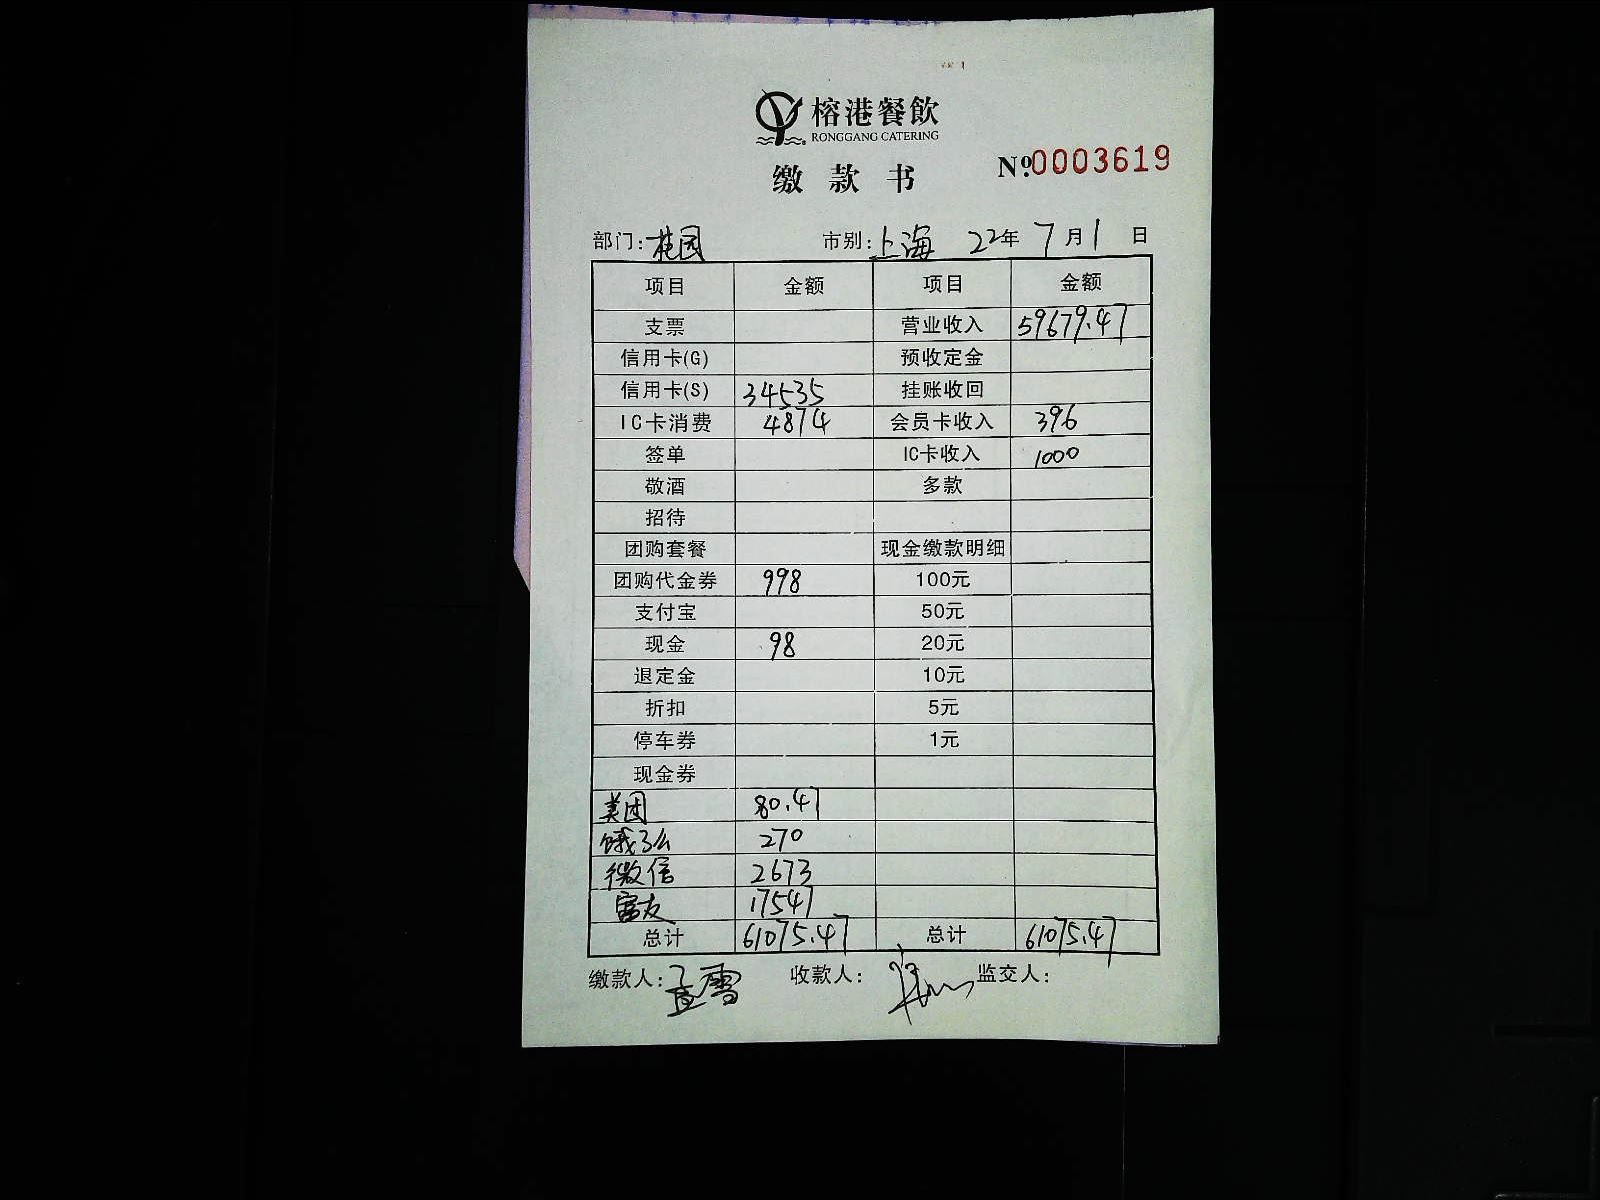 榕港餐飲
RONGGANG CATERING
缴款书
№0003619
部门：桂园 市别：上海 22年7月1日
项目 金额 项目 金额
支票 营业收入 59679.47
信用卡(G) 预收定金
信用卡(S) 34535 挂账收回
IC卡消费 4874 会员卡收入 396
签单 IC卡收入 1000
敬酒 多款
招待
团购套餐 现金缴款明细
团购代金券 998 100元
支付宝 50元
现金 98 20元
退定金 10元
折扣 5元
停车券 1元
现金券
美团 80.47
饿了么 270
微信 2673
富友 17547
总计 61075.47 总计 61075.47
缴款人： 收款人： 监交人：